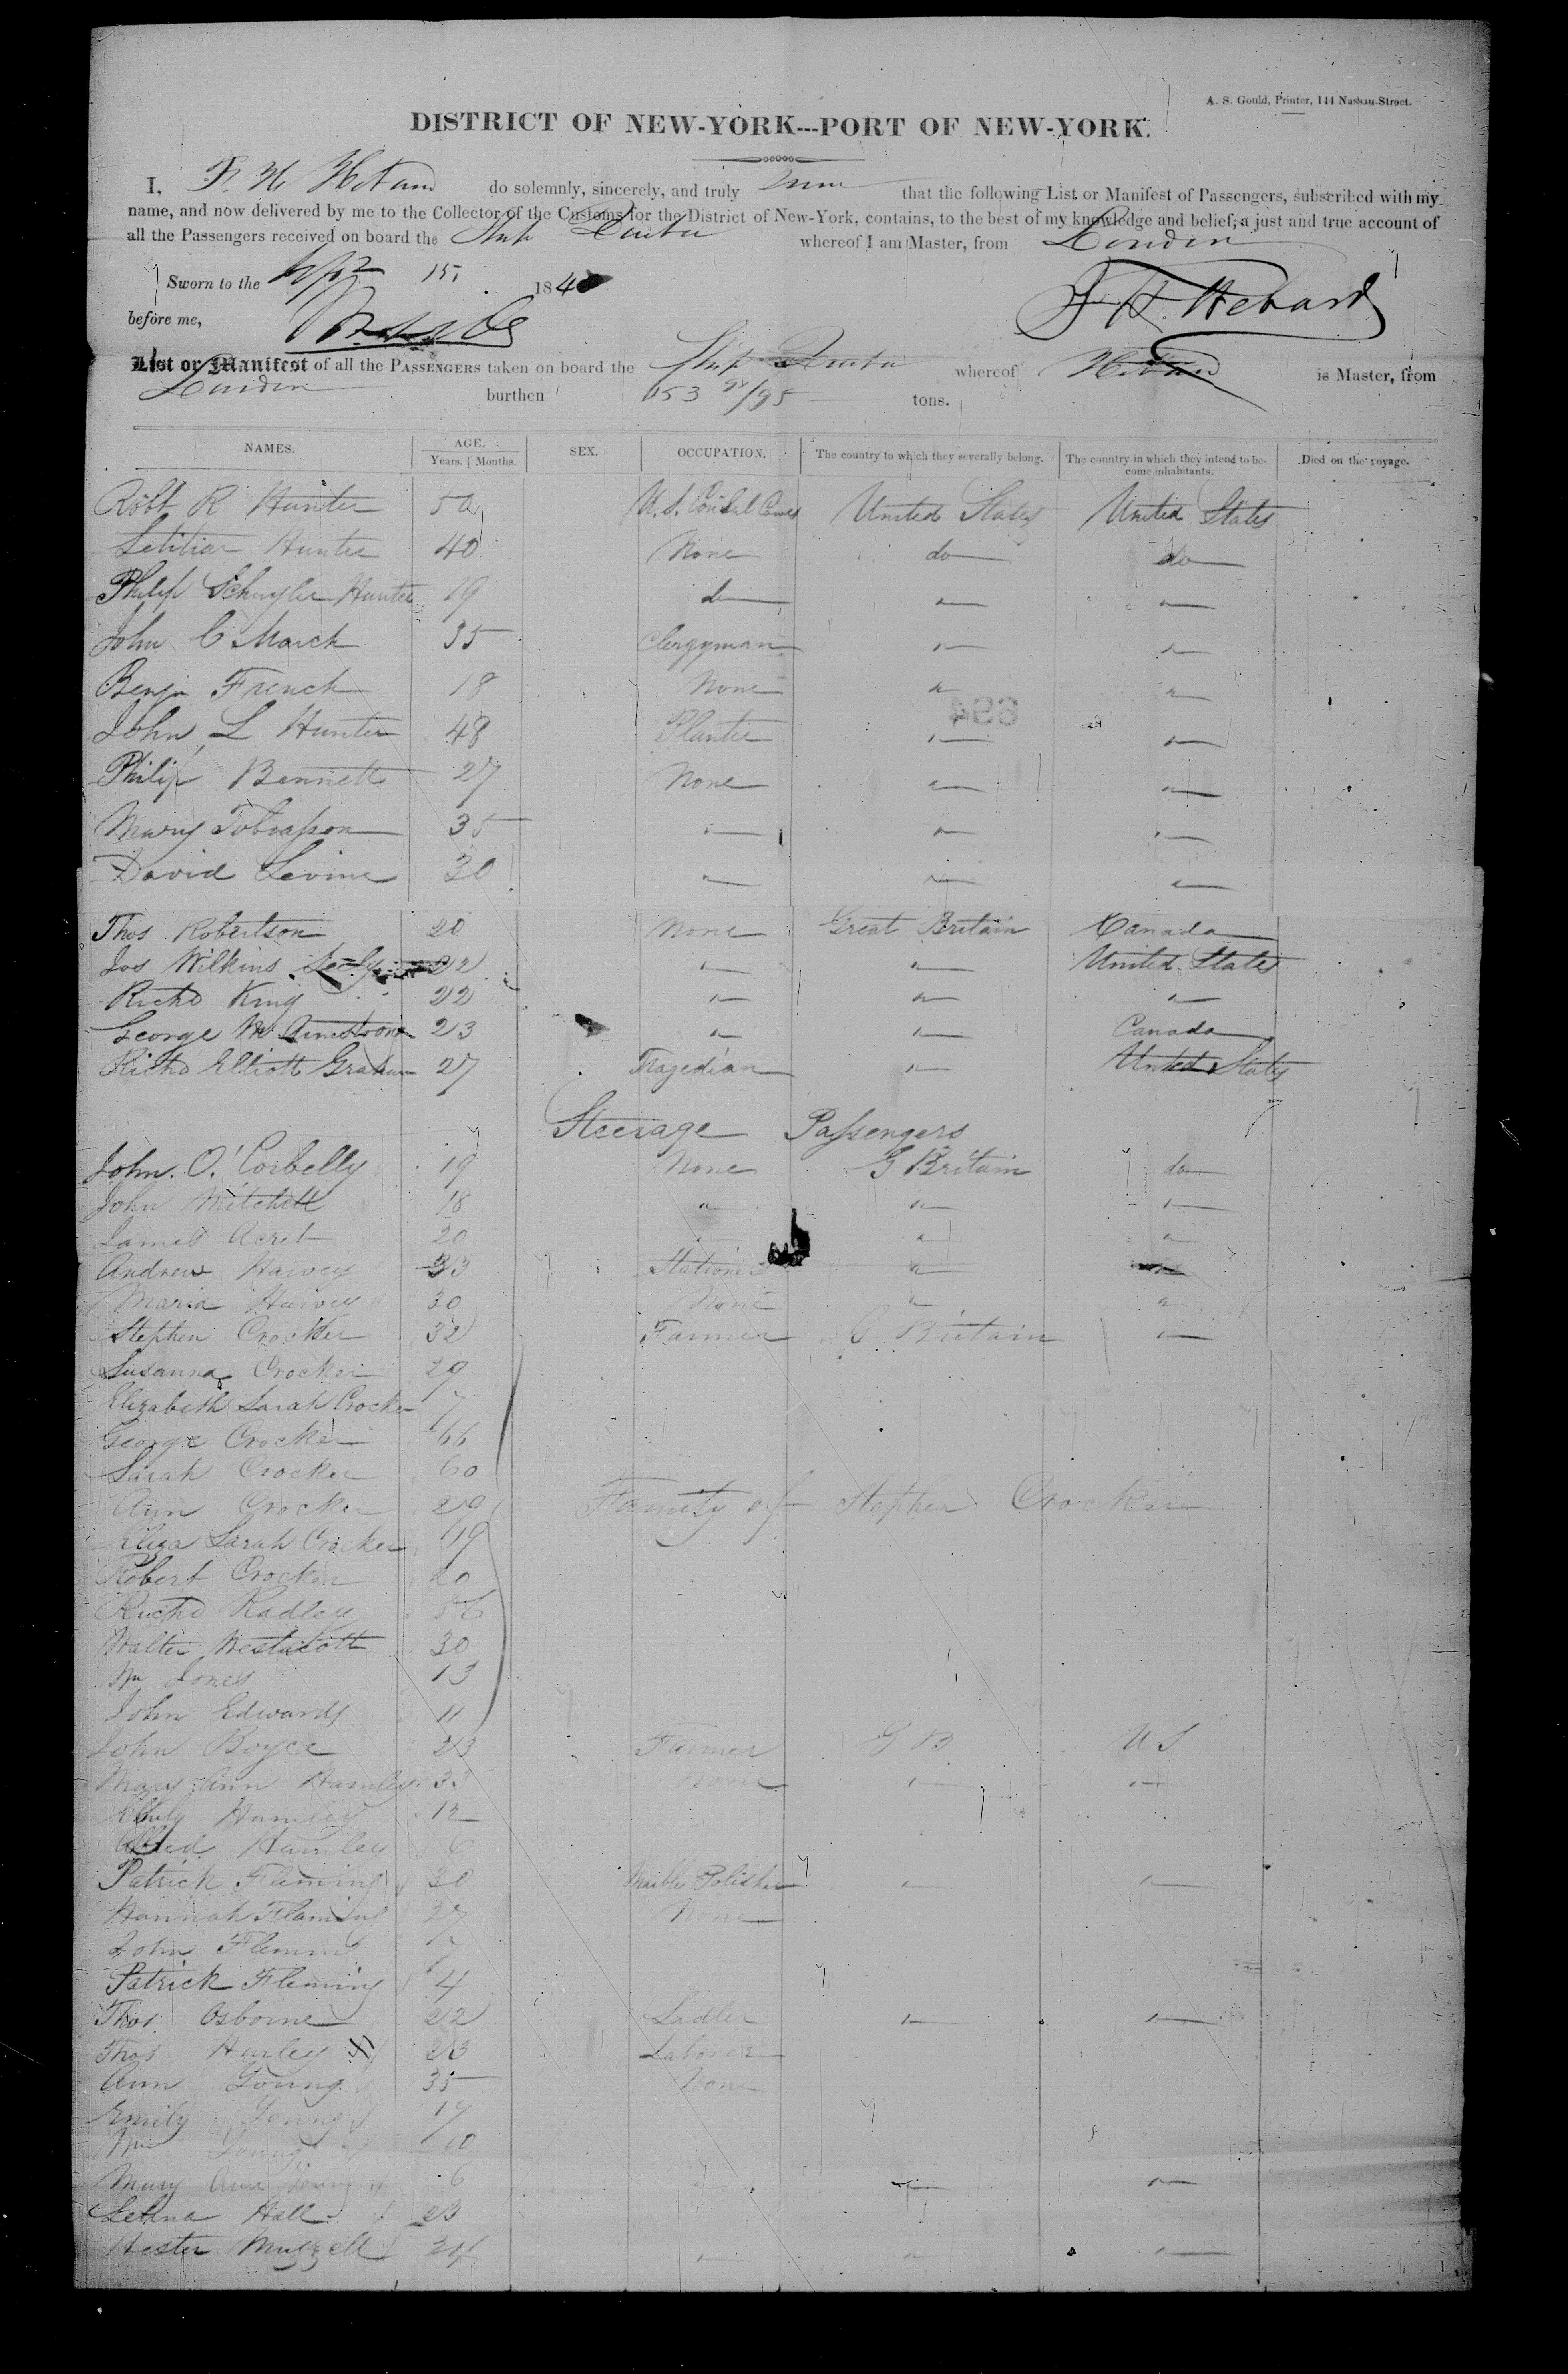 A. S. Gould, Printer, 144 Nassau-Street.
DISTRICT OF NEW-YORK---PORT OF NEW-YORK.
I, F. H. Hebard do solemnly, sincerely, and truly that the following List or Manifest of Passengers, subscribed with my
name, and now delivered by me to the Collector of the Customs for the District of New-York, contains, to the best of my knowledge and belief, a just and true account of
all the Passengers received on board the Ship whereof I am Master, from London
Sworn to the Sept 15, 184
F. H. Hebard
before me,
List or Manifest of all the PASSENGERS taken on board the Ship whereof Hebard is Master, from
London burthen tons.
NAMES. AGE. Years. Months. SEX. OCCUPATION. The country to which they severally belong. The country in which they intend to become inhabitants. Died on the voyage.
Robt R Hunter 50 U. S. Consul Cowes United States United States
Letitia Hunter 40 None do do
Philip Schuyler Hunter 19 do " "
John C March 35 Clergyman " "
Benjn French 18 None " "
694
John L Hunter 48 Planter " "
Philip Bennett 27 None " "
Mary 35 " " "
David Levine 30 " " "
Thos Robertson 20 None Great Britain Canada
Jos Wilkins 22 " " United States
Richd King 22 " " "
George Mc 23 " " Canada
Richd Elliott Graham 27 Tragedian " United States
Steerage Passengers
John. O. Corbelly 19 None G Britain do
John Mitchell 18 " " "
James Acret 20 " " "
Andrew Harvey 33 Stationer " "
Maria Harvey 30 None " "
Stephen Crocker 32 Farmer G. Britain "
Susanna Crocker 29
Elizabeth Sarah Crocker 7
George Crocker 66
Sarah Crocker 60
Ann Crocker 29 Family of Stephen Crocker
Eliza Sarah Crocker 19
Robert Crocker 20
Richd Radley 56
Walter Westacott 30
Wm Jones 13
John Edwards 11
John Boyce 23 Farmer G B U S
Mary Ann Hamley 33 None " "
Hamley 12
Alfred Hamley 6
Patrick Fleming 30 Marble Polisher " "
Hannah Fleming 27 None
John Fleming
Patrick Fleming 4
Thos Osborne 22 Sadler " "
Thos Hurley 23 Laborer
Ann Young 35 None
Emily Young 17
Wm Young 10
Mary Ann Young 6 " " "
Selina Hall 23
Hester Muzzell 34 " " "